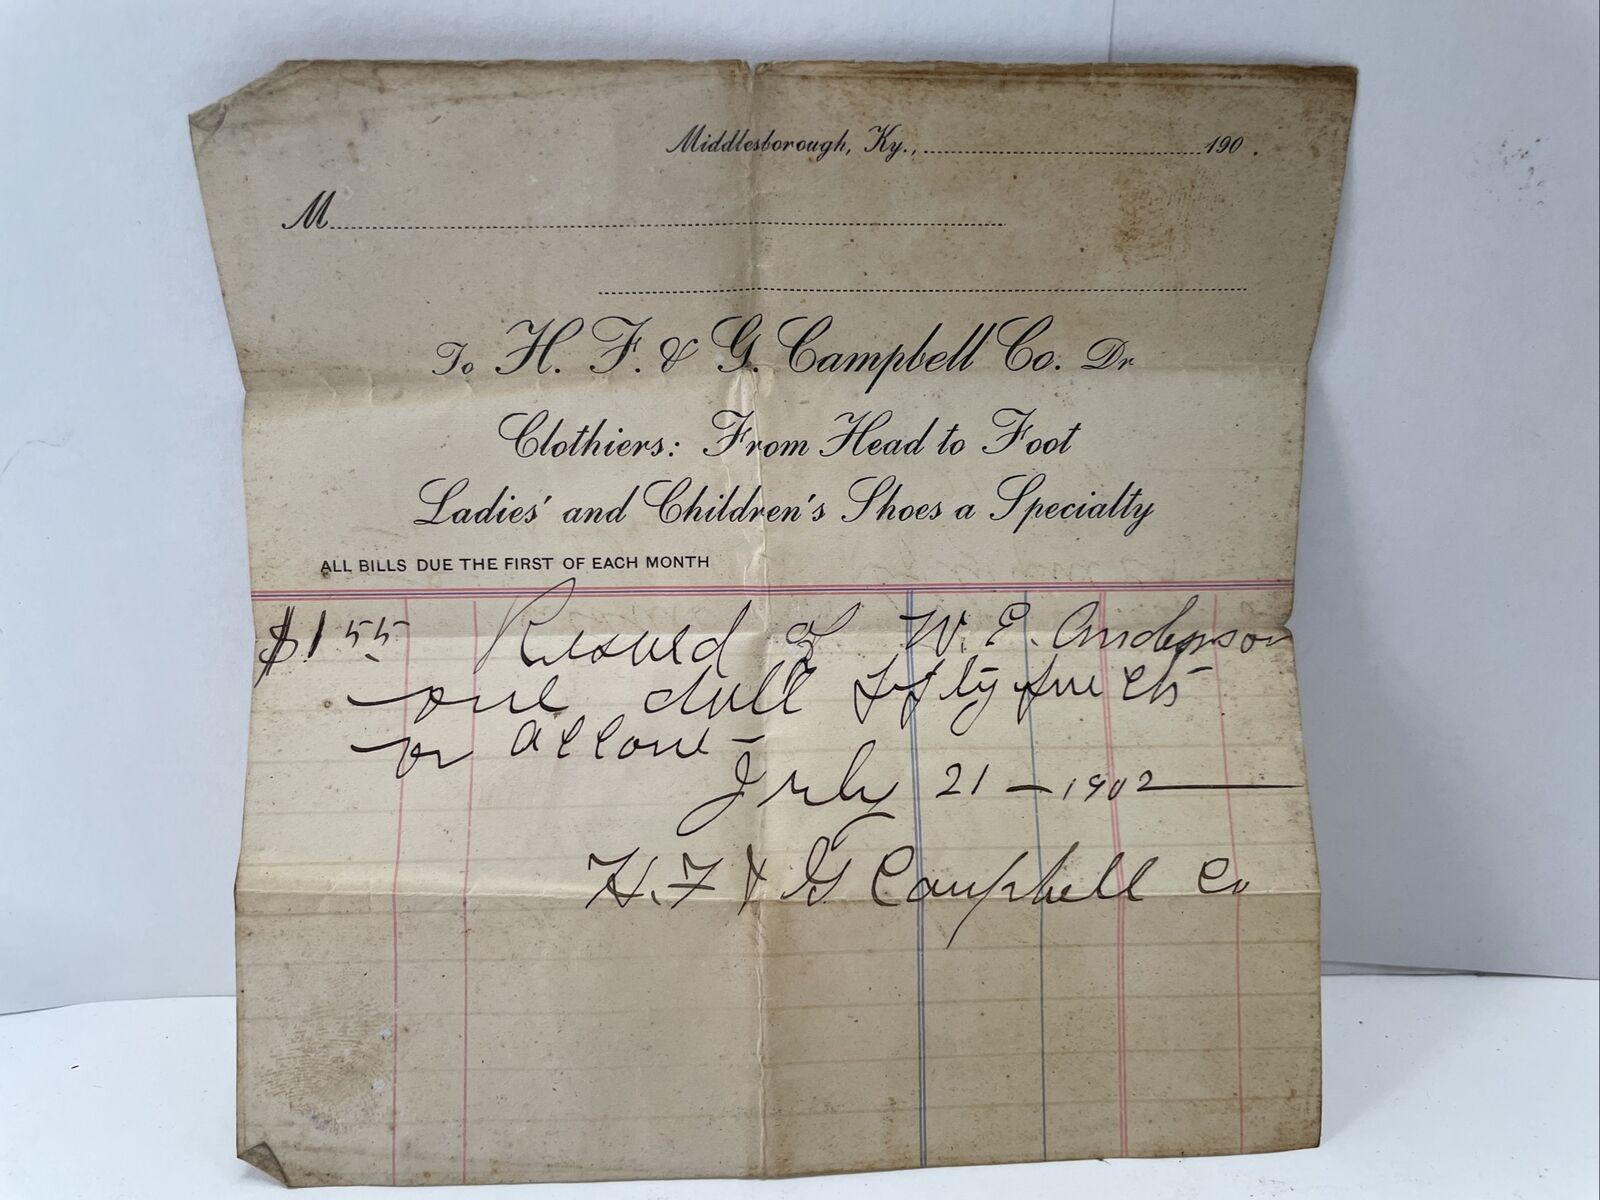 Middlesborough, Ky., 190 .
M
To H. F. & G. Campbell Co. Dr
Clothiers: From Head to Foot
Ladies' and Children's Shoes a Specialty
ALL BILLS DUE THE FIRST OF EACH MONTH
$1 55 of W. E. Anderson
one doll fifty five cts
on
July 21 - 1902
H. F & G Campbell Co